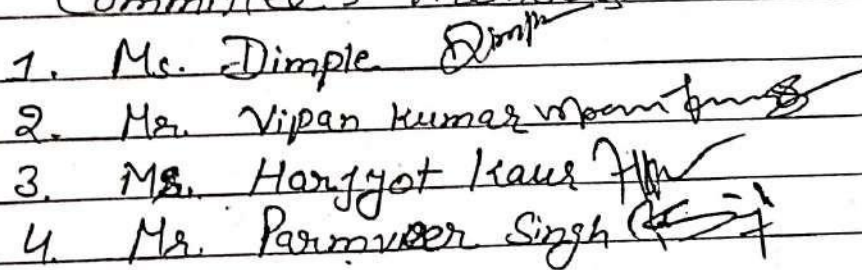 1. Ms. Dimple
2. Mr. Vipan Kumar
3. Ms. Harjyot Kaur
4. Mr. Parmveer Singh